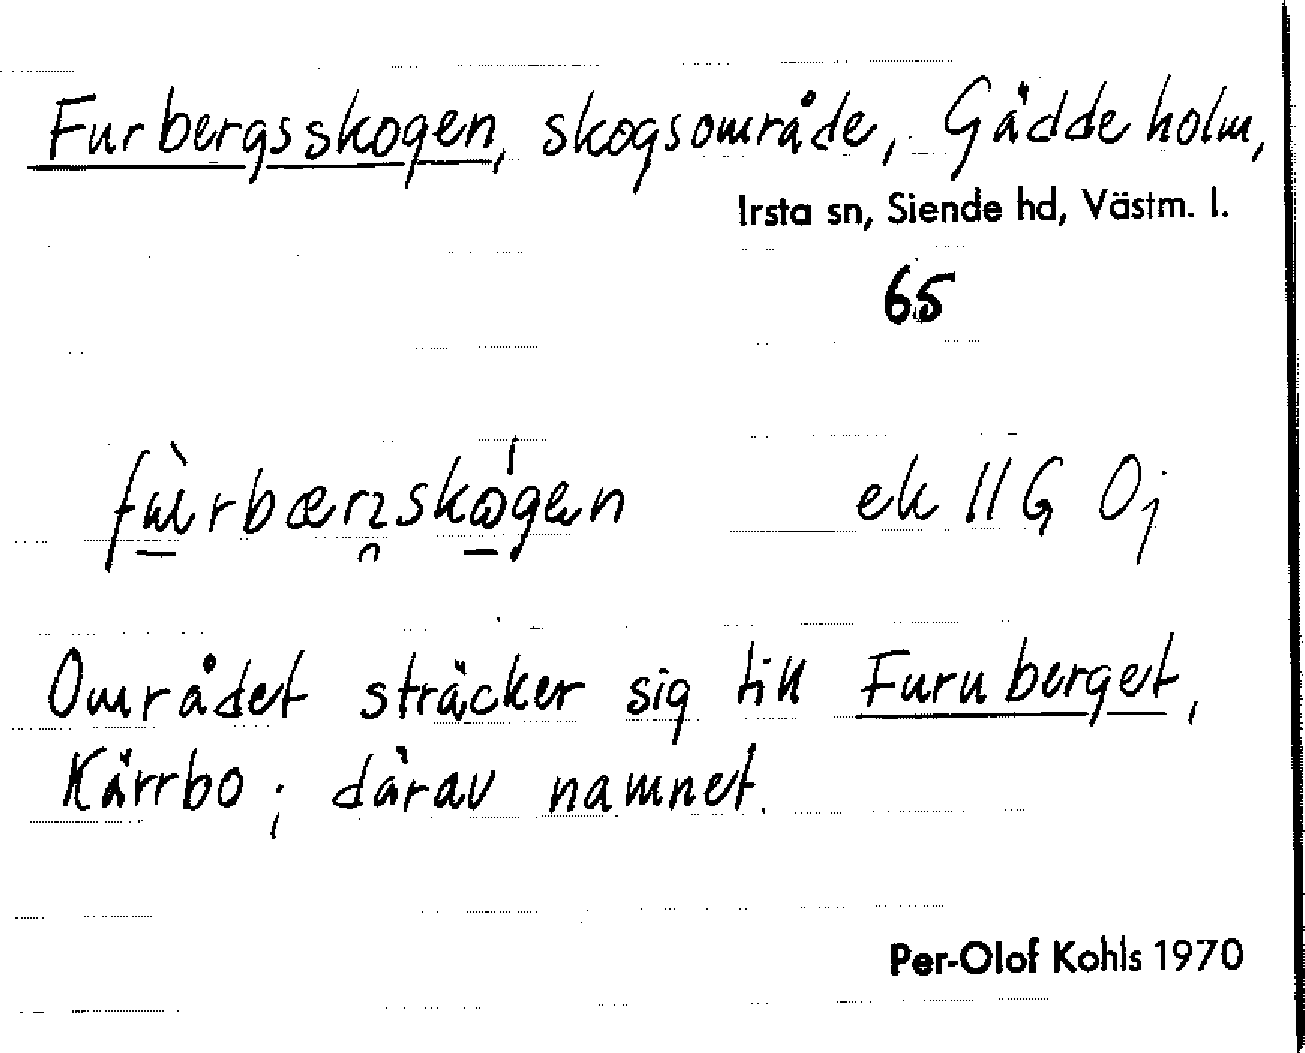 Furbergsskogen, skogsområde, Gäddeholm,
Irsta sn, Siende hd, Västm. l.
65
ek 11G Oj
Området sträcker sig till Furuberget,
Kärrbo; därav namnet.
Per-Olof Kohls 1970